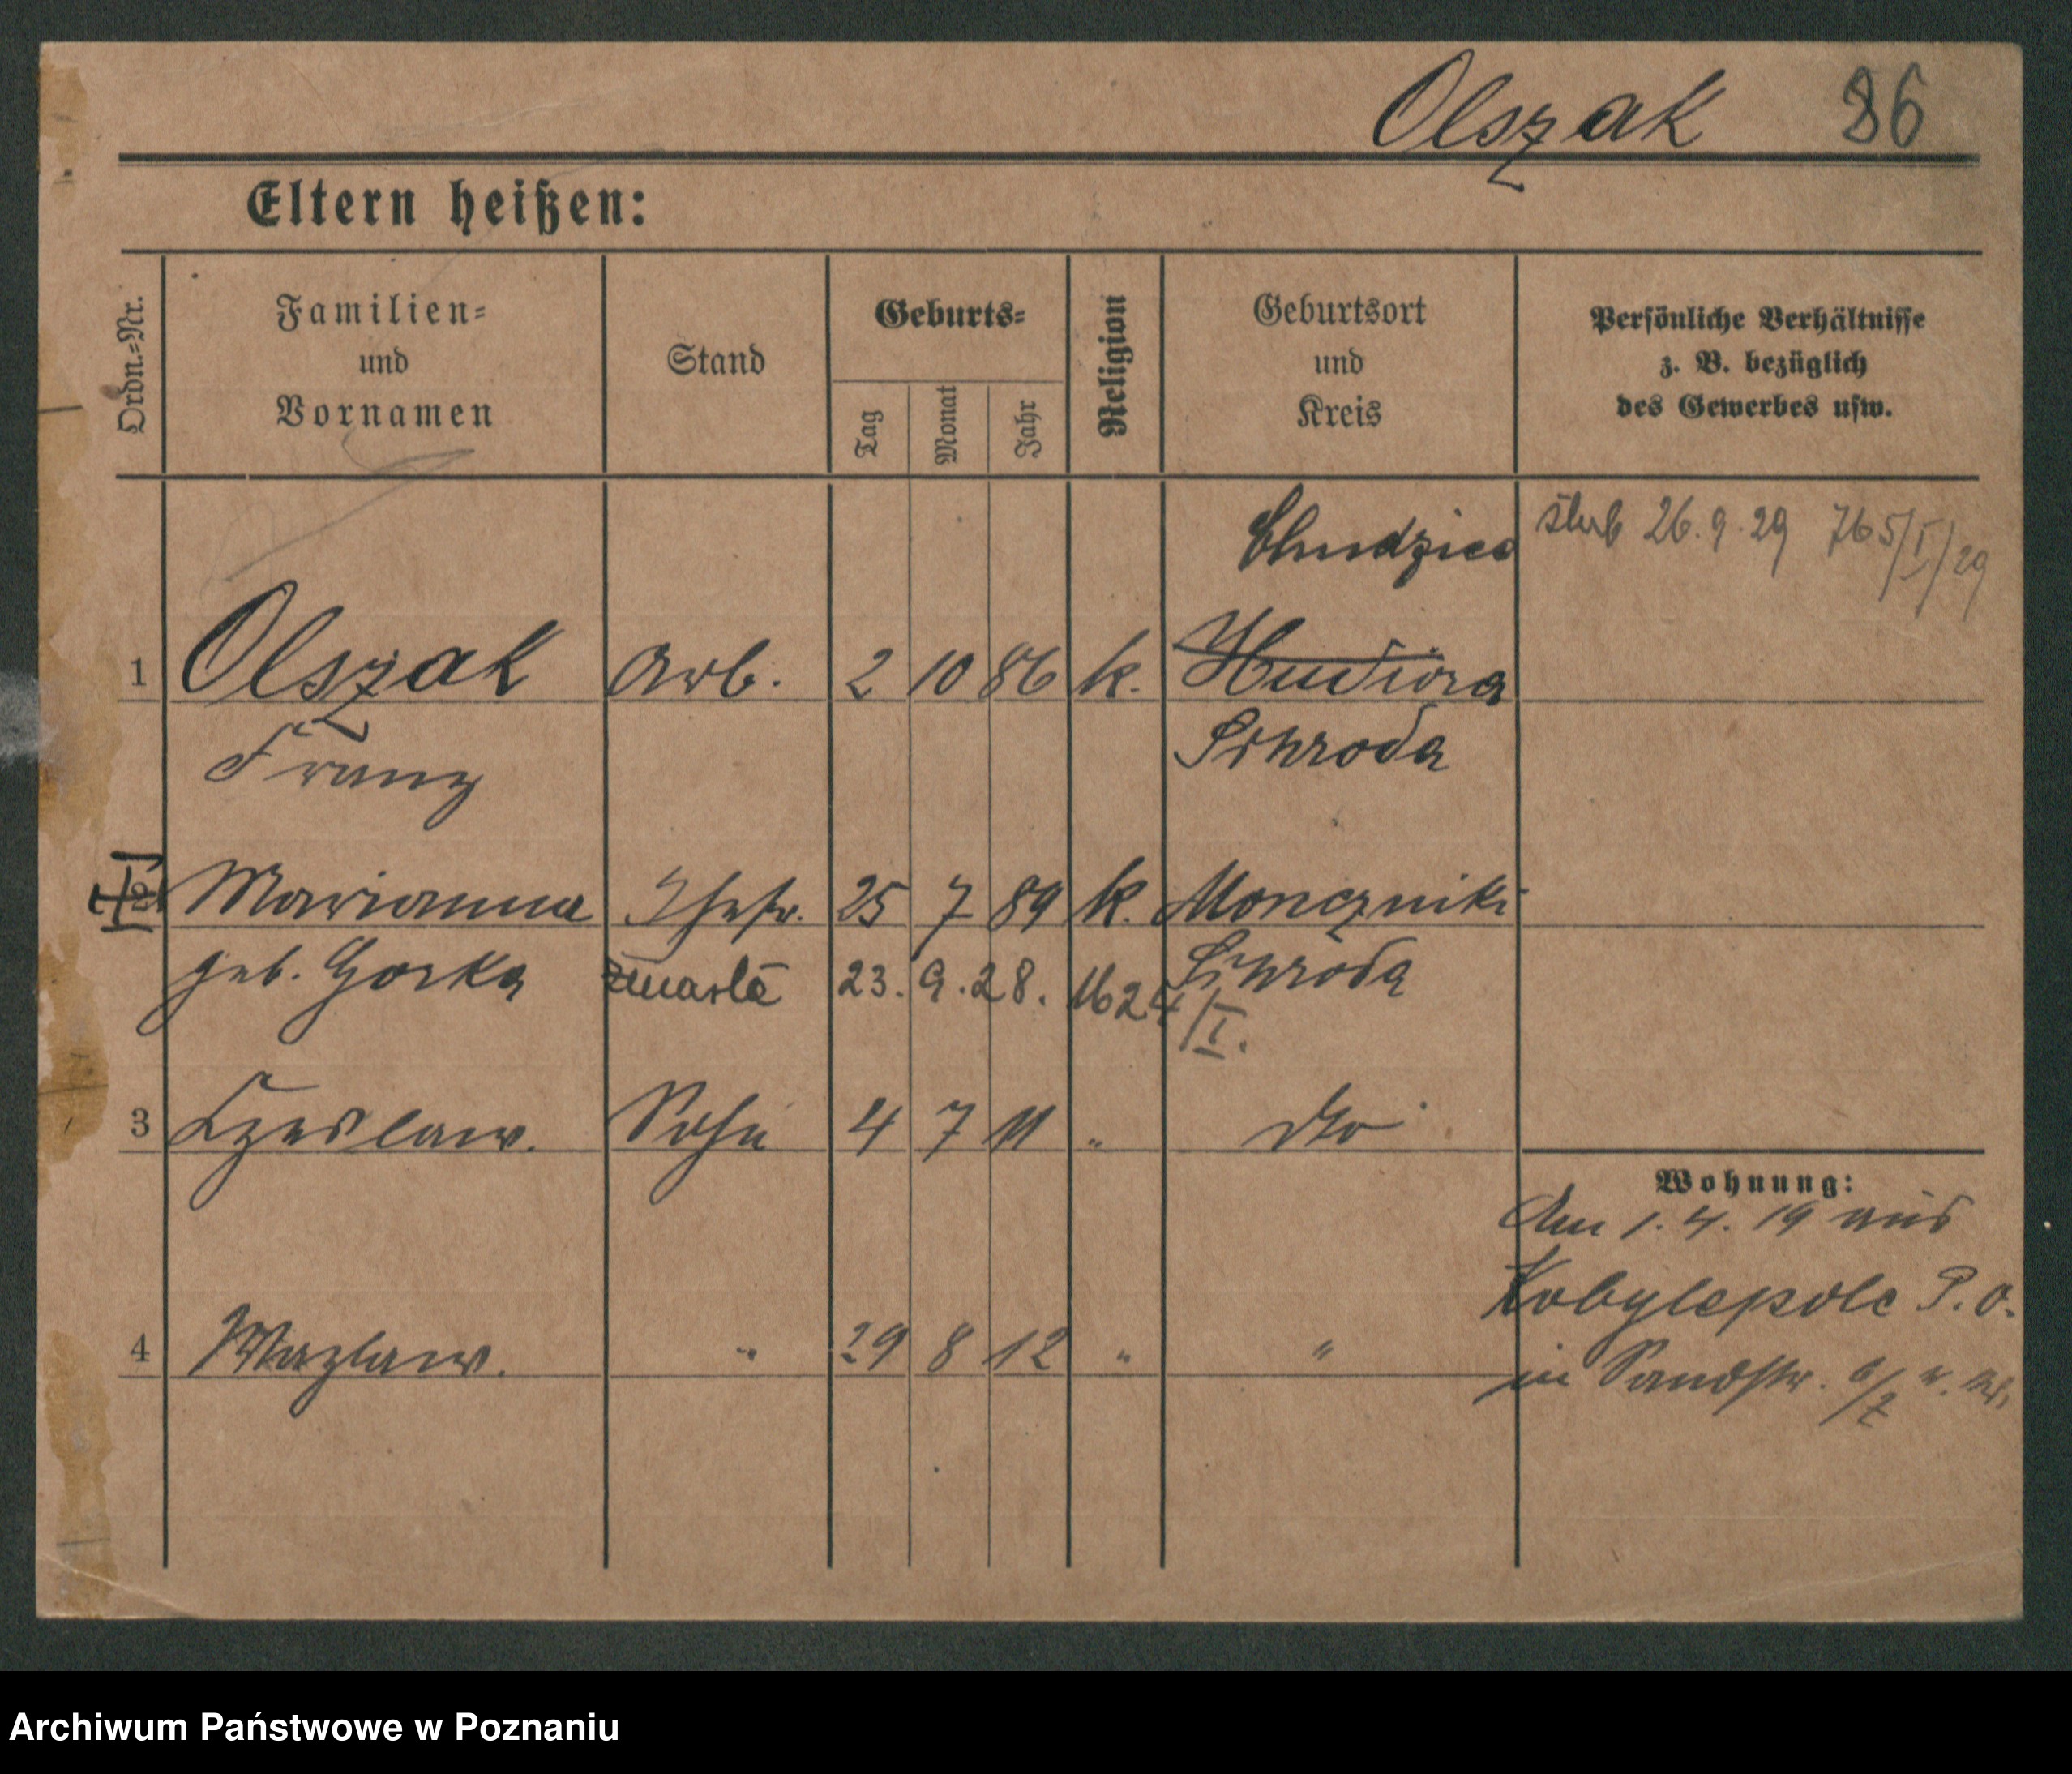 Olszak 86
Eltern heißen:
Ordn.=Nr.
Familien=
und
Vornamen
Stand
Geburts=
Tag
Monat
Jahr
Religion
Geburtsort
und
Kreis
Persönliche Verhältnisse
z. B. bezüglich
des Gewerbes usw.
ślub 26.9.29 765/I/29
1 Olszak Arb. 2 10 86 k.
Franz Schroda
2 Marianna Ehefr. 25 7 89 k. Moncznicki
geb. Gorka zmarła 23. 9. 28. 1624/I. Schroda
3 Czeslaw. Sohn 4 7 11 " dto
Wohnung:
Am 1. 4. 19 aus
Kobylepole P. O.
4 Wazlaw. " 29 8 12 " "
in Sandstr.
Archiwum Państwowe w Poznaniu